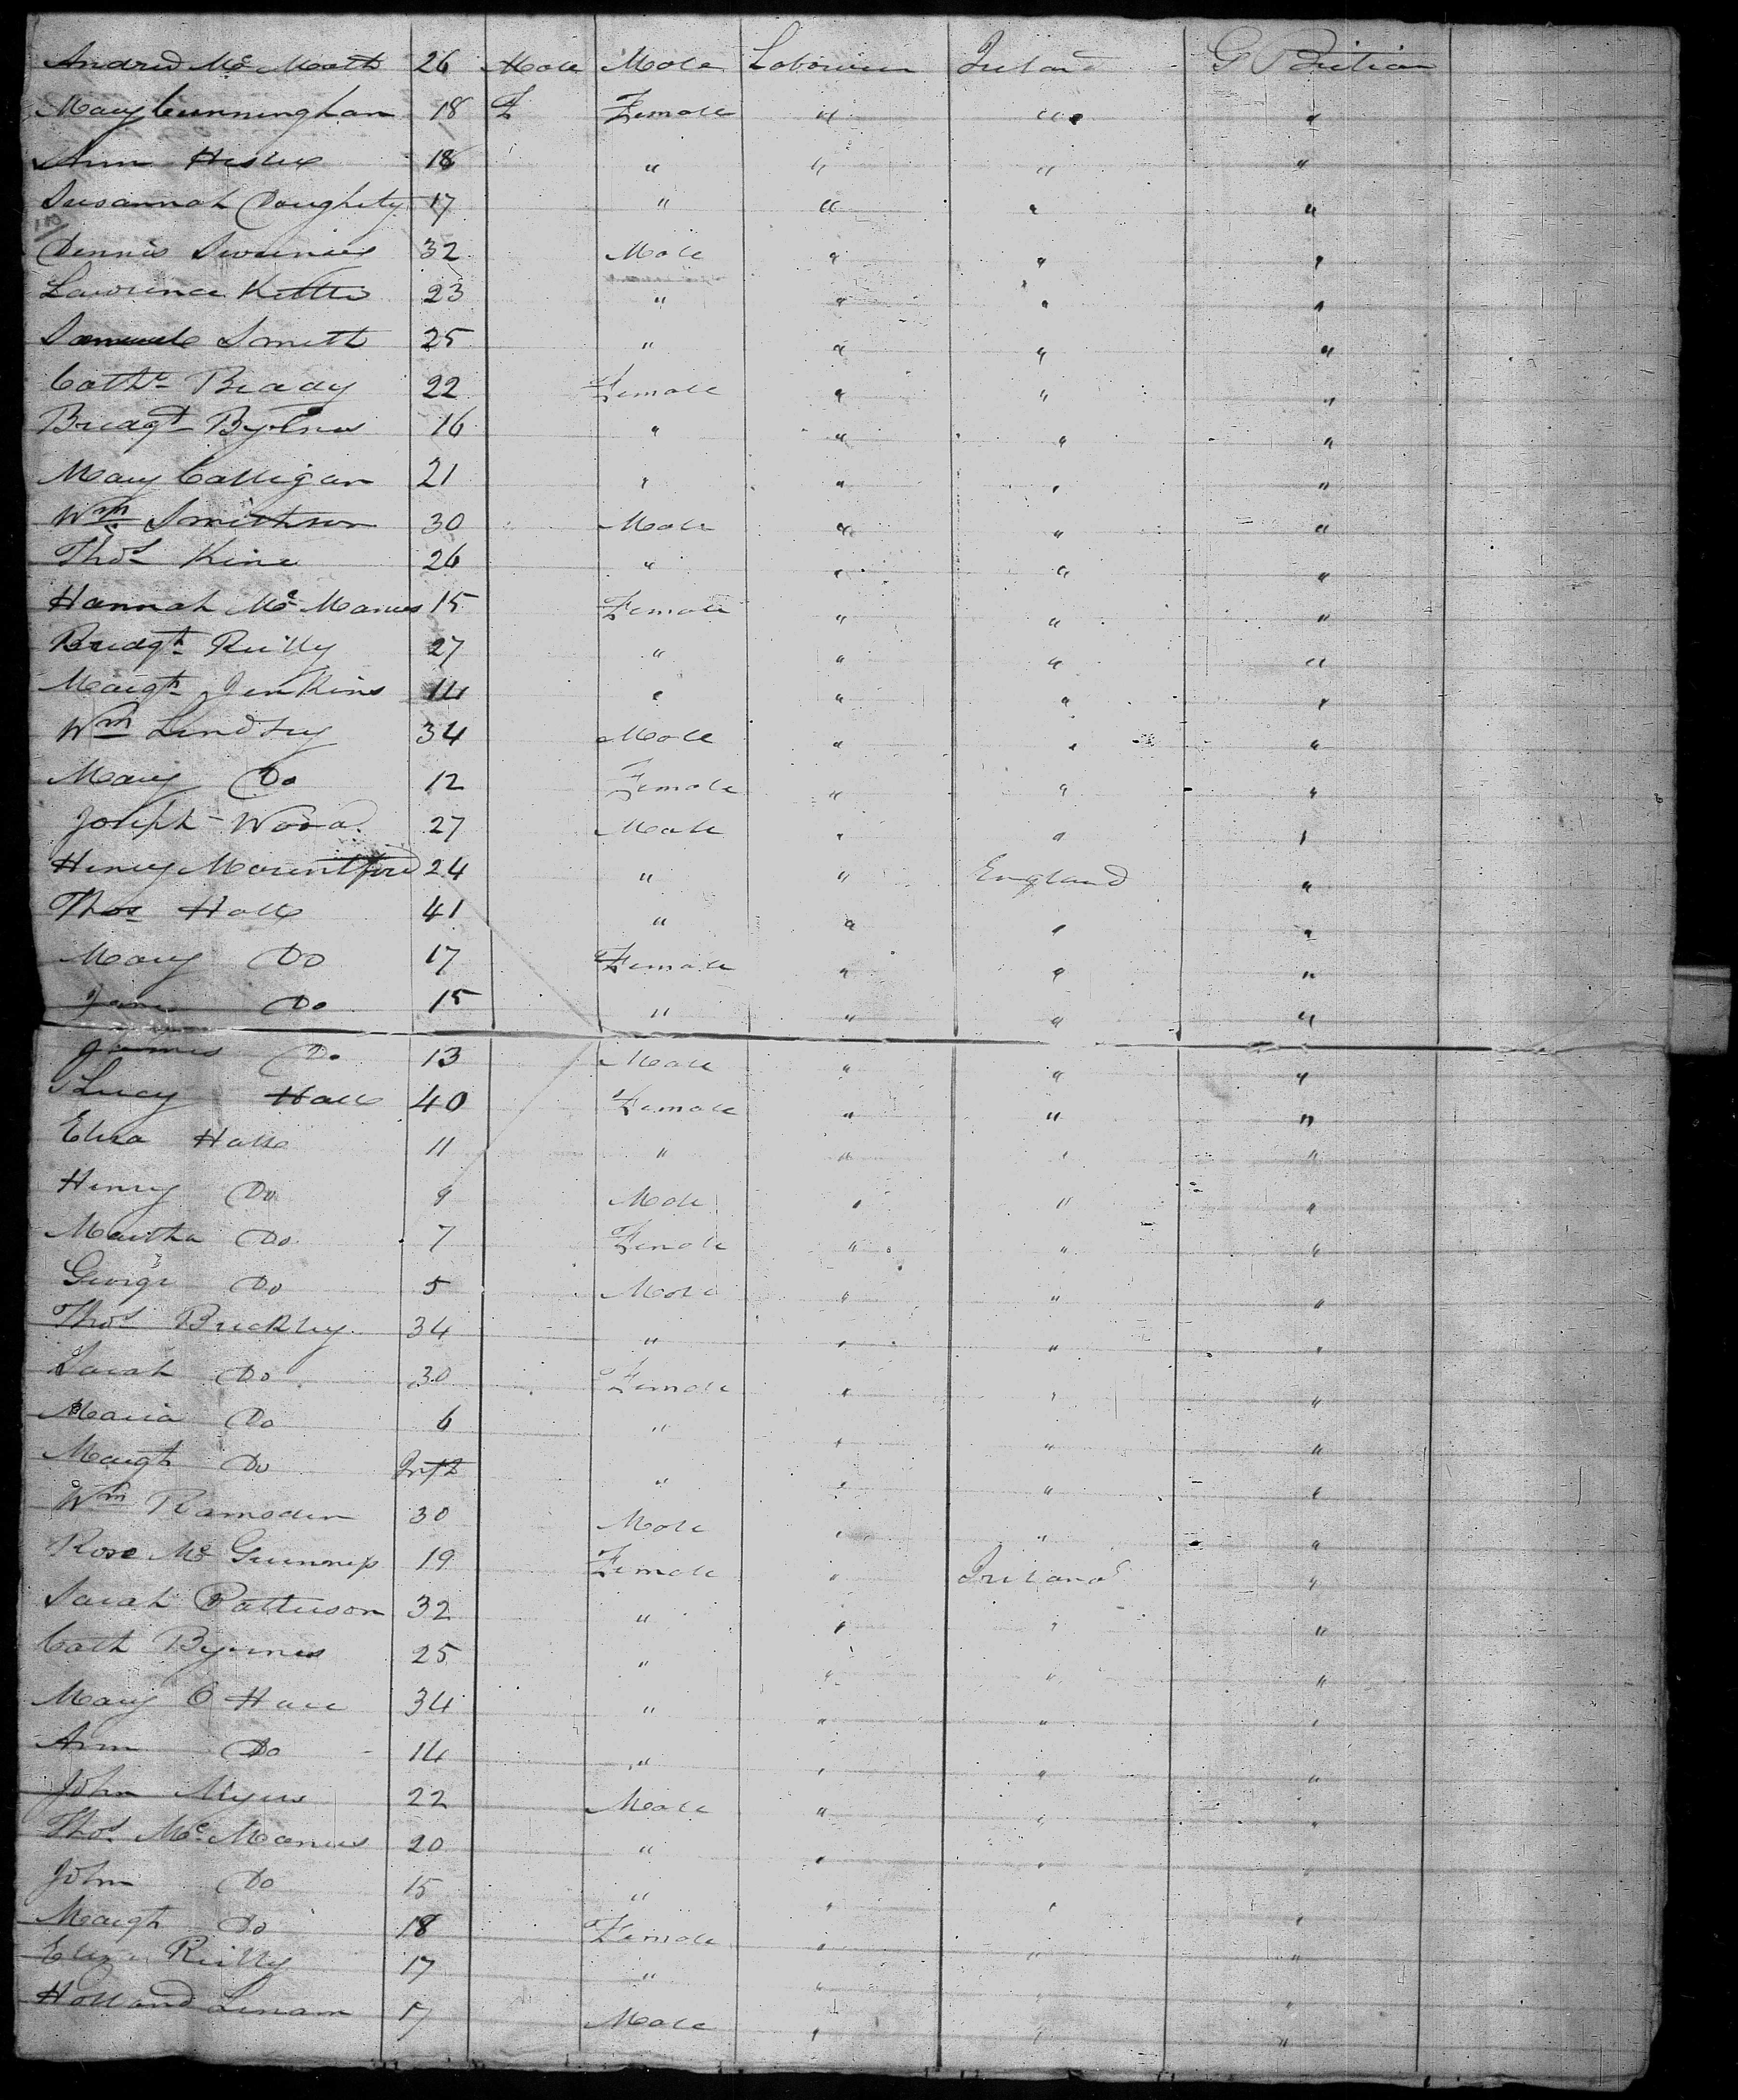 Andrew Mc Math 26 Male Male Labourer Ireland G Britian
Mary Cunningham 18 F Female " " "
Ann 18 " " " "
Susannah Doughety 17 " " " "
Dennis Sweenies 32 Male " " "
Lawrence Kettle 23 " " " "
Samuel Smith 25 " " " "
Cathe Brady 22 Female " " "
Bridgt Byrnes 16 " " " "
Mary Calligan 21 " " " "
Wm Smithson 30 Male " " "
Thos King 26 " " " "
Hannah Mc Manus 15 Female " " "
Bridgt Reilly 27 " " " "
Margt Jenkins 14 " " " "
Wm Lindsey 34 Male " " "
Mary Do 12 Female " " "
Joseph Wood 27 Male " " "
Henry Mountford 24 " " England "
Thos Hall 41 " " " "
Mary Do 17 Female " " "
Jane Do 15 " " " "
James Do 13 Male " " "
Lucy Hall 40 Female " " "
Eliza Hall 11 " " " "
Henry Do 9 Male " " "
Martha Do 7 Female " " "
George Do 5 Male " " "
Thos Brickley 34 " " " "
Sarah Do 30 Female " " "
Maria Do 6 " " " "
Margt Do Inft " " " "
Wm Ramsden 30 Male " " "
Rose Mc 19 Female " Ireland "
Sarah Patterson 32 " " " "
Cath Byrnes 25 " " " "
Mary O Hare 34 " " " "
Ann Do 14 " " " "
John Myers 22 Male " " "
Thos Mc Manus 20 " " " "
John Do 15 " " " "
Margt Do 18 Female " " "
Eliza Reilly 17 " " " "
Holland Linam 17 Male " " "